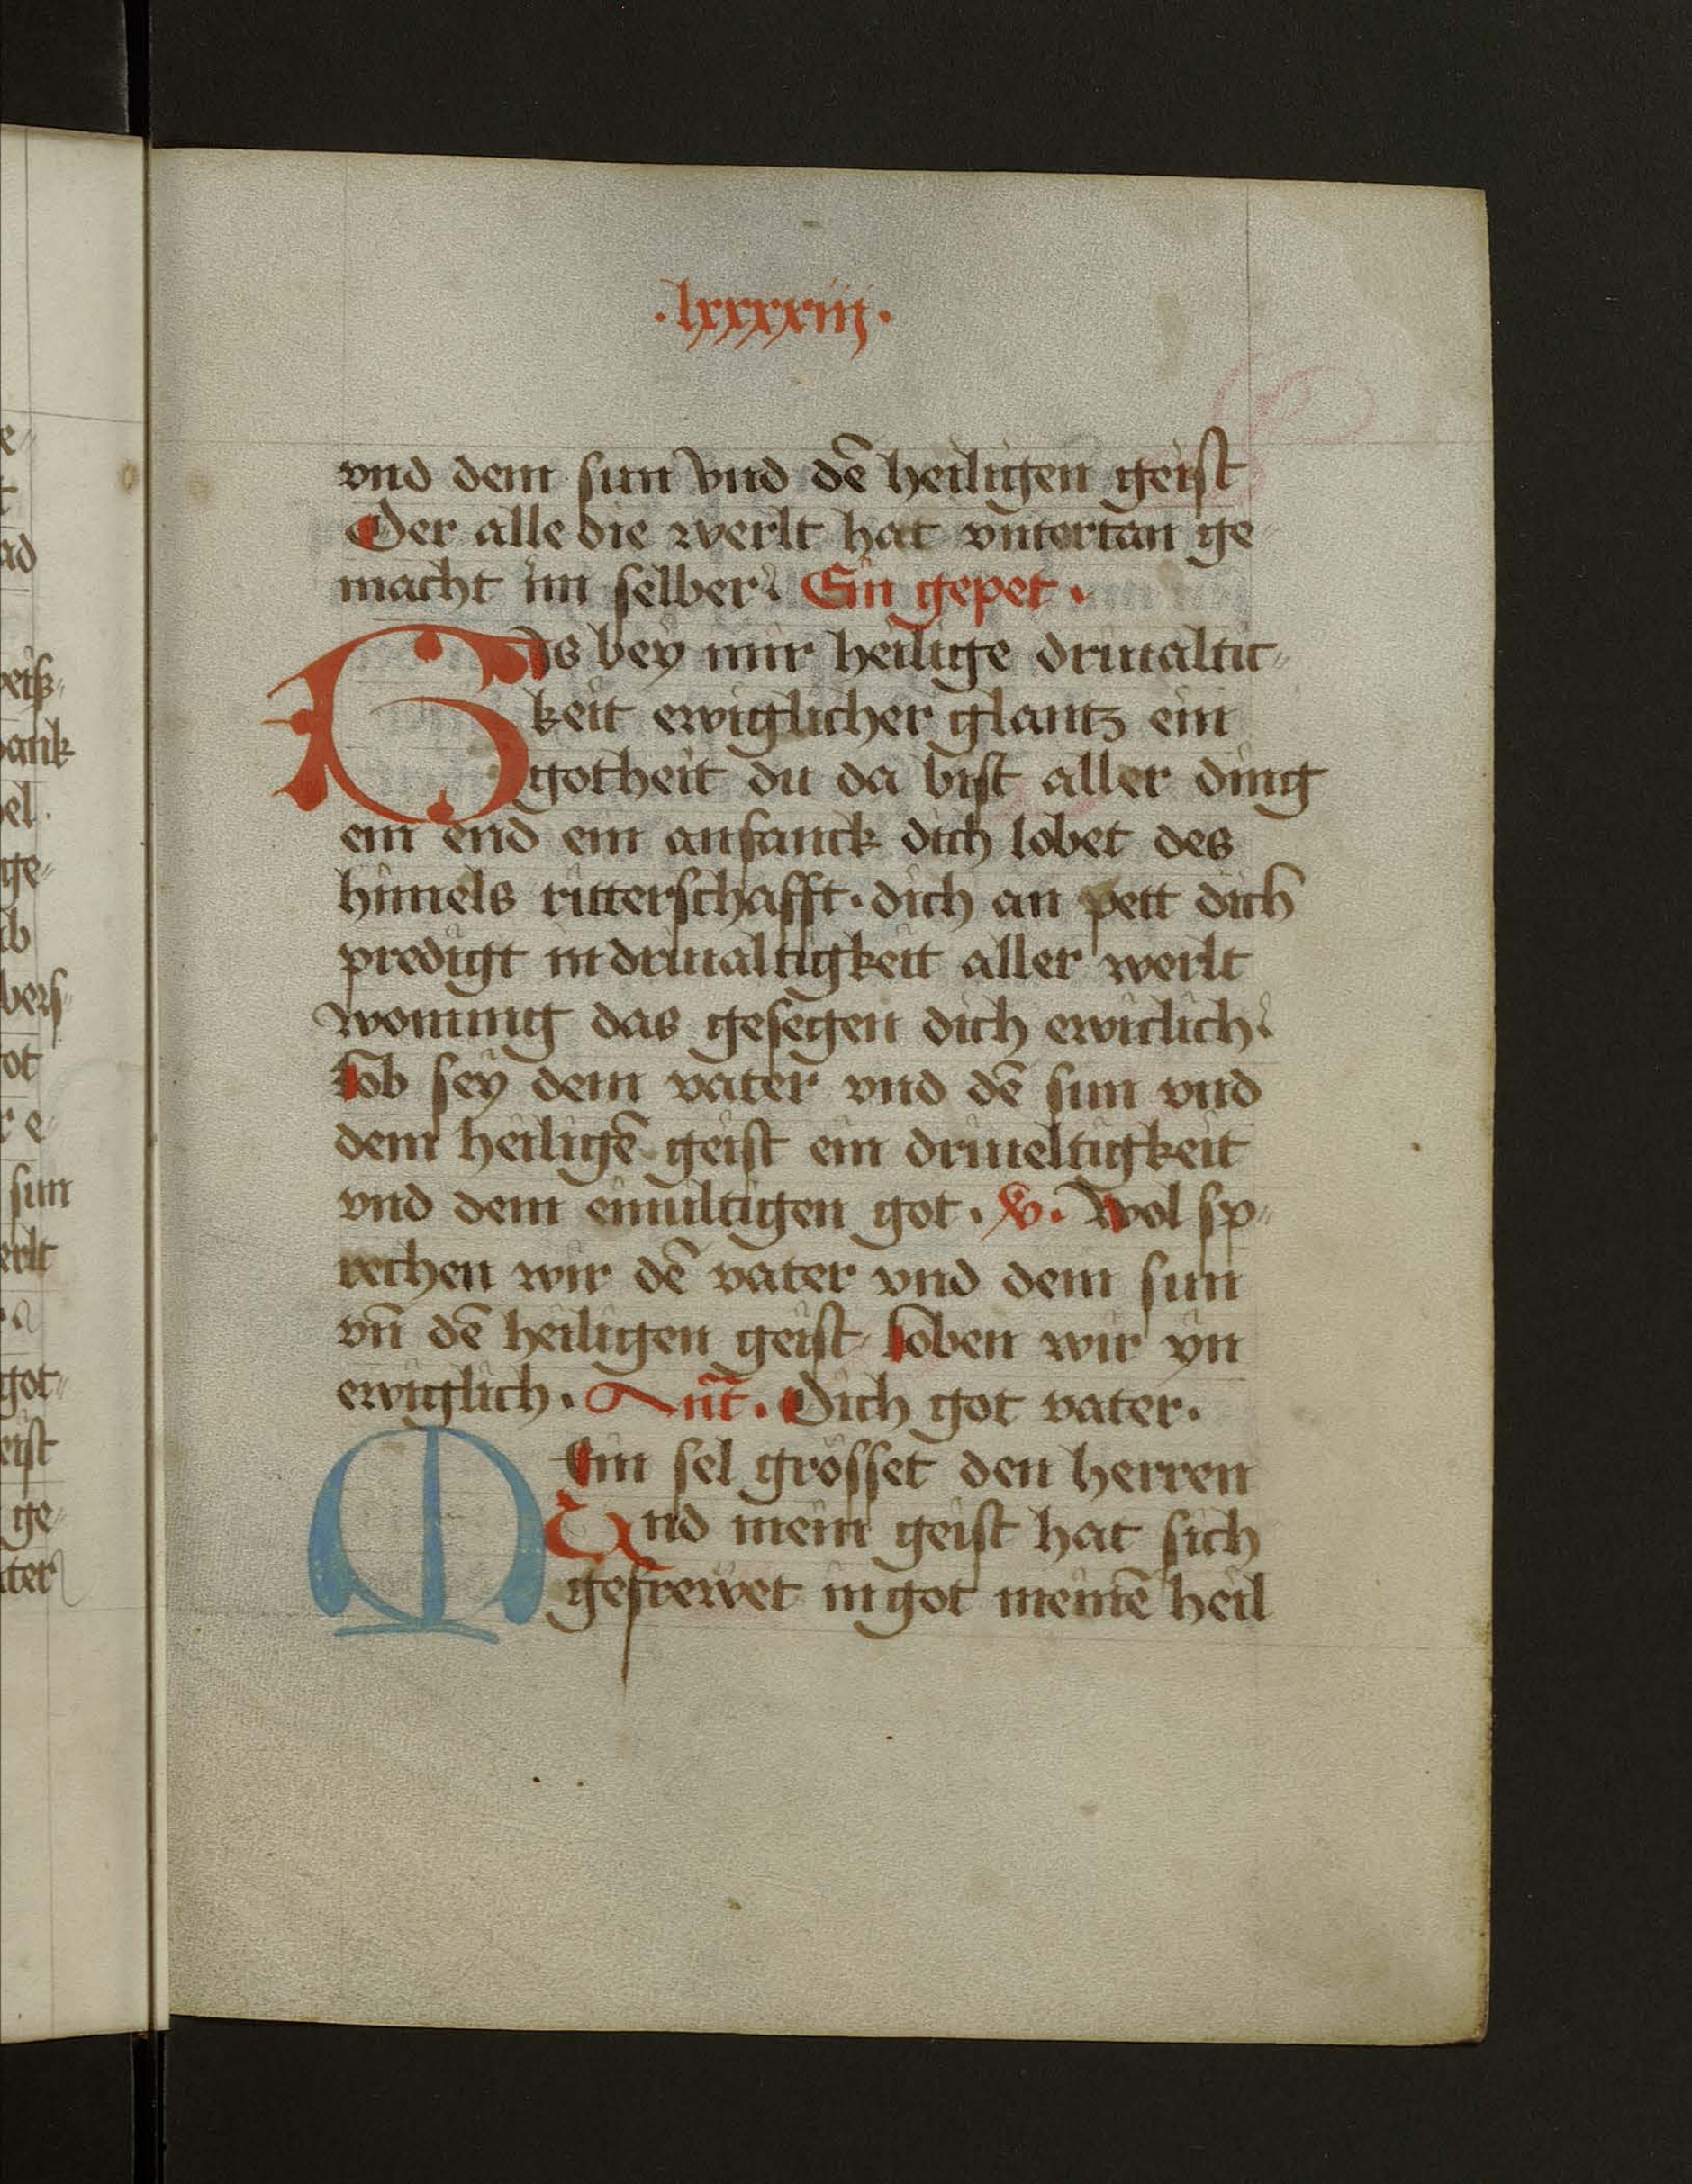 ·lxxxxiij·
vnd dem sun vnd dē heiligen geist
Der alle die werlt hat vntertan ge
macht im selber. Ein gepet.
Bis bey mir heilige driualtic=
keit ewiglicher glantz ein
gotheit du da bist aller ding
ein end ein anfanck dich lobet des
himels ritterschafft· dich an pett dich
predigt in driualtigkeit aller werlt
wonung das gesegen dich ewiclich.
Lob sey dem vater vnd dē sun vnd
dem heiligē geist ein driueltigkeit
vnd dem einuiltigen got. v. Wol sp=
rechen wir dē vater vnd dem sun
vn̄ dē heiligen geist Loben wir yn
ewiglich. Ant̄. Dich got vater.
Mein sel grösset den herren
Und mein geist hat sich
gefrewet in got meinē heil
e=
t
nd
ank
el.
ge=
ot
sun
erlt
got=
eist
ge=
ter